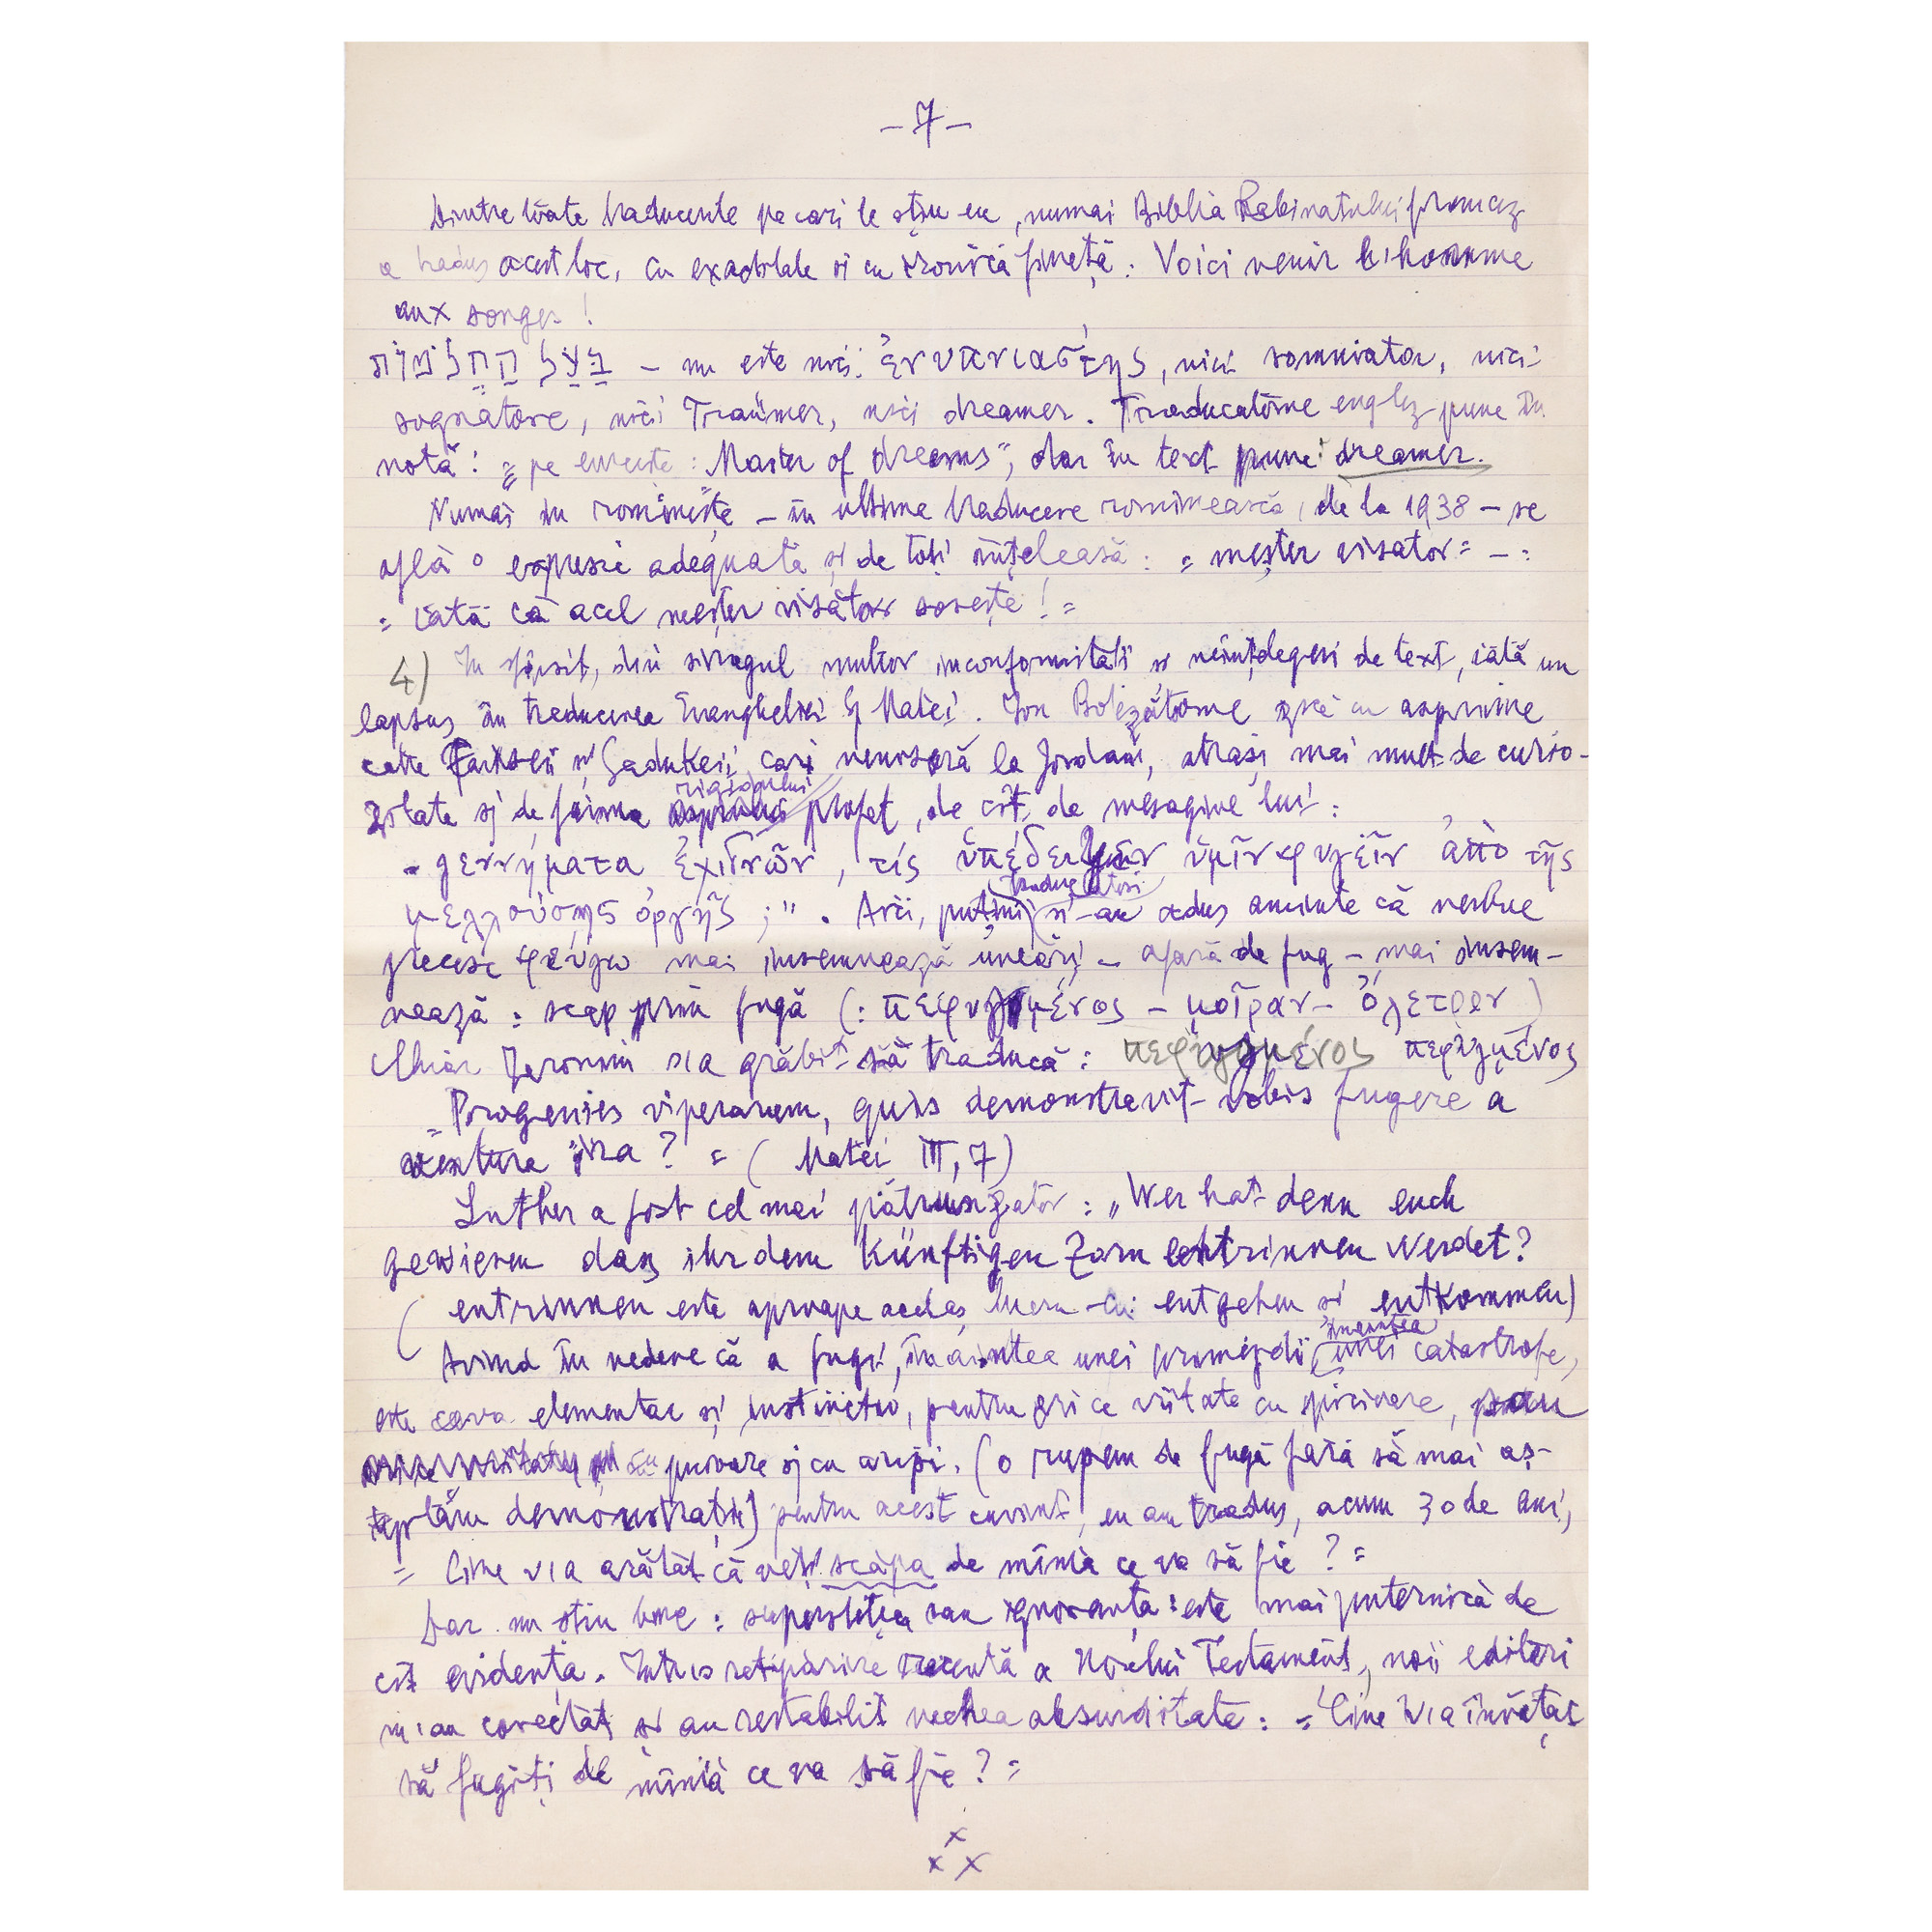 – 7 –
Dintre toate traducerile pe cari le știu eu, numai Biblia Rabinatului francez
a tradus acest loc, cu exactitate și cu ironică fineță: Voici venir l'homme
aux songes!
בַּעַל הַחֲלֹמוֹת – nu este nici: ἐνυπνιαστής, nici somniator, nici
sognatore, nici Träumer, nici dreamer. Traducătorul englez pune în
notă: „pe evreiește: Master of dreams”, dar în text pune: dreamer.
Numai în romînește – în ultima traducere romînească, de la 1938 – se
află o expresie adequată și de toți înțeleasă: = meșter visător = – :
= Iată că acel meșter visător sosește! =
4) În sfîrșit, din șiragul multor inconformități și neînțelegeri de text, iată un
lapsus în traducerea Evangheliei lui Matei. Ion Botezătorul zice cu asprime
către Fariseii și Sadukeii cari veniseră la Iordan, atrași mai mult de curio-
zitate și de faima rigidului profet, de cît de mesagiul lui:
– γεννήματα ἐχιδνῶν, τίς ὑπέδειξεν ὑμῖν φυγεῖν ἀπὸ τῆς
μελλούσης ὀργῆς;”. Aici, puțini traducători și-au adus aminte că verbul
grecesc φεύγω mai însemnează uneori – afară de fug – mai însem-
nează: scap prin fugă (: πεφυγμένος – μοῖραν – ὄλεθρον)
Chiar Ieronim s'a grăbit să traducă: πεφυγμένος πεφυγμένος
„Progenies viperarum, quis demonstravit vobis fugere a
ventura ira? = (Matei III, 7)
Luther a fost cel mai pătrunzător: „Wer hat denn euch
gewiesen dasz ihr dem künftigen Zorn entrinnen werdet?
(entrinnen este aproape acelaș lucru cu: entgehen și entkommen)
Avînd în vedere că a fugi, înaintea unei primejdii, înaintea unei catastrofe,
este ceva elementar și instinctiv, pentru orice viitate cu picioare, sau
cu picioare și cu aripi, (o rupem de fugă fără să mai aș-
teptăm demonstrații) pentru acest cuvînt, eu am tradus, acum 30 de ani,
= Cine v'a arătat că veți scăpa de mînia ce va să fie? =
Dar nu știu bine: superstiția sau ignoranța este mai puternică de
cît evidența. Într'o retipărire recentă a Noului Testament, noii editori
m'au corectat și au restabilit vechea absurditate: = Cine v'a învățat
să fugiți de mînia ce va să fie? =
x
x x